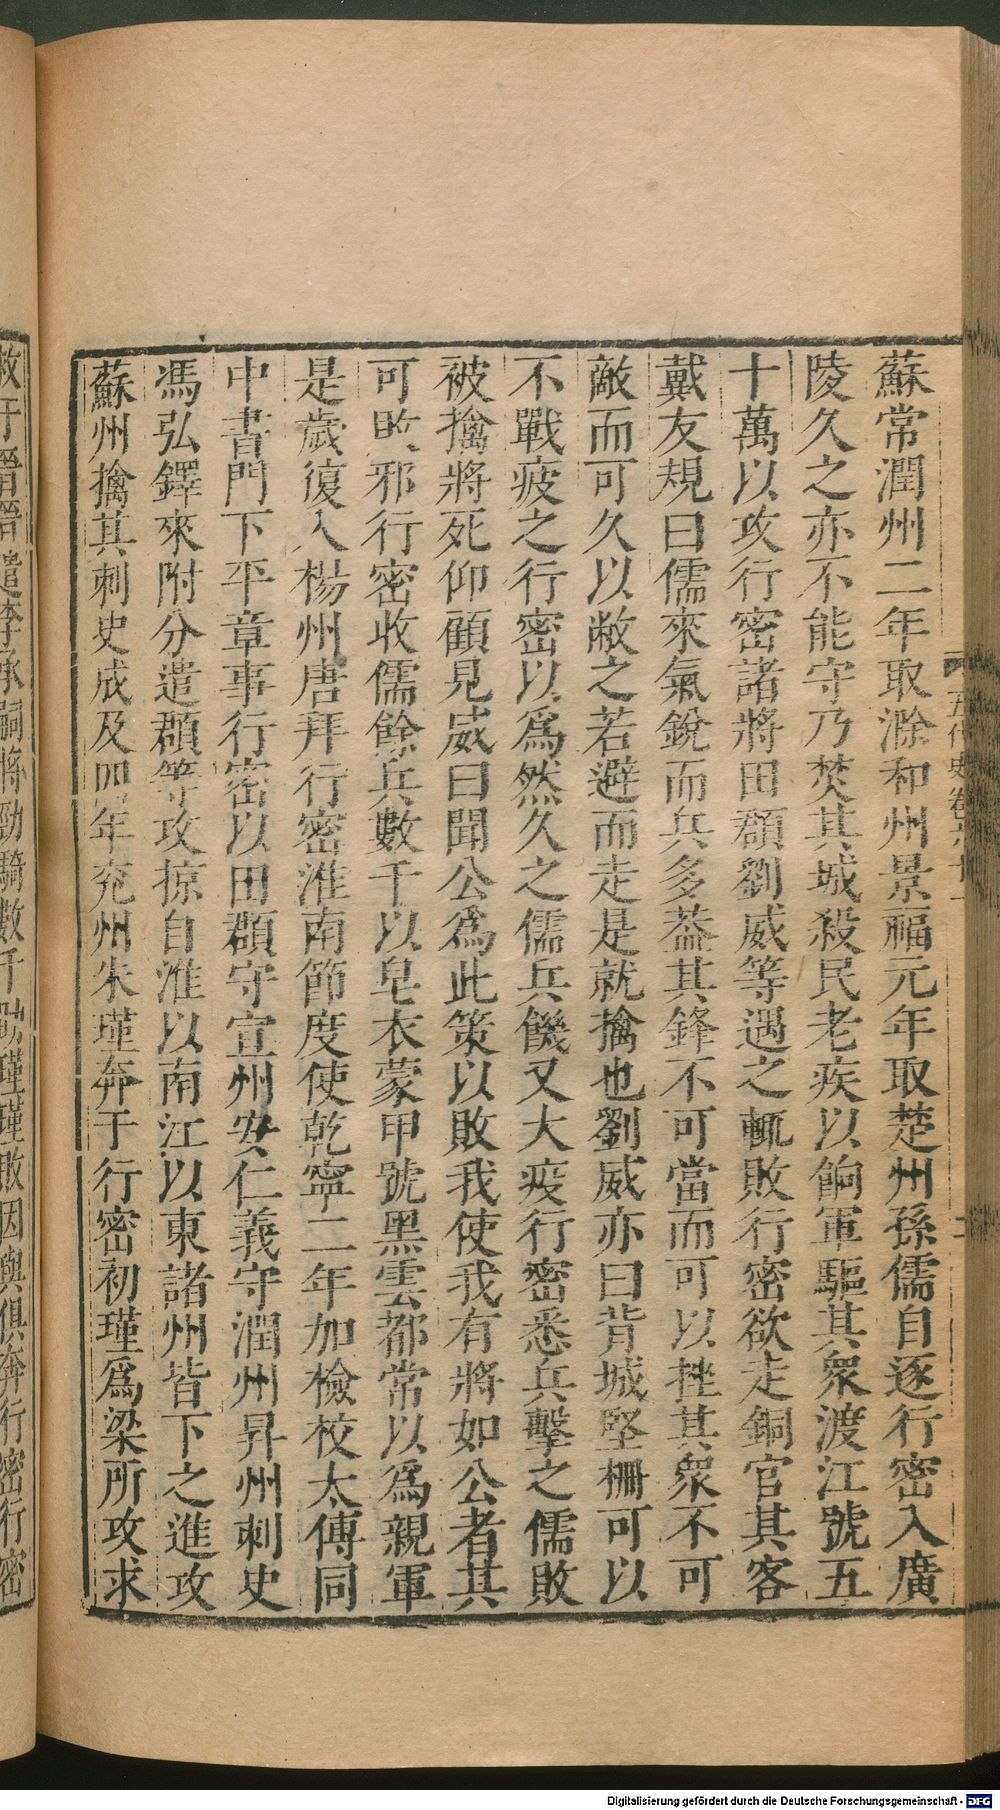 蘇常潤州二年取滁和州景福元年取楚州孫儒自逐行密入廣
陵久之亦不能守乃焚其城殺民老疾以餉軍驅其衆渡江號五
十萬以攻行密諸將田頵劉威等遇之輒敗行密欲走銅官其客
戴友規曰儒來氣銳而兵多葢其鋒不可當而可以挫其衆不可
敵而可久以敝之若避而走是就擒也劉威亦曰背城堅柵可以
不戰疲之行密以爲然久之儒兵饑又大疫行密悉兵擊之儒敗
被擒將死仰顧見威曰聞公爲此策以敗我使我有將如公者其
可敗邪行密收儒餘兵數千以皂衣蒙甲號黑雲都常以爲親軍
是歲復入楊州唐拜行密淮南節度使乾寧二年加檢校太傅同
中書門下平章事行密以田頵守宣州安仁義守潤州昇州刺史
馮弘鐸來附分遣頵等攻掠自淮以南江以東諸州皆下之進攻
蘇州擒其刺史成及四年兖州朱瑾奔于行密初瑾爲梁所攻求
救于晉晉遣李承嗣將勁騎數千助瑾瑾敗因與俱奔行密行密
五代史卷六十一
Digitalisierung gefördert durch die Deutsche Forschungsgemeinschaft - DFG